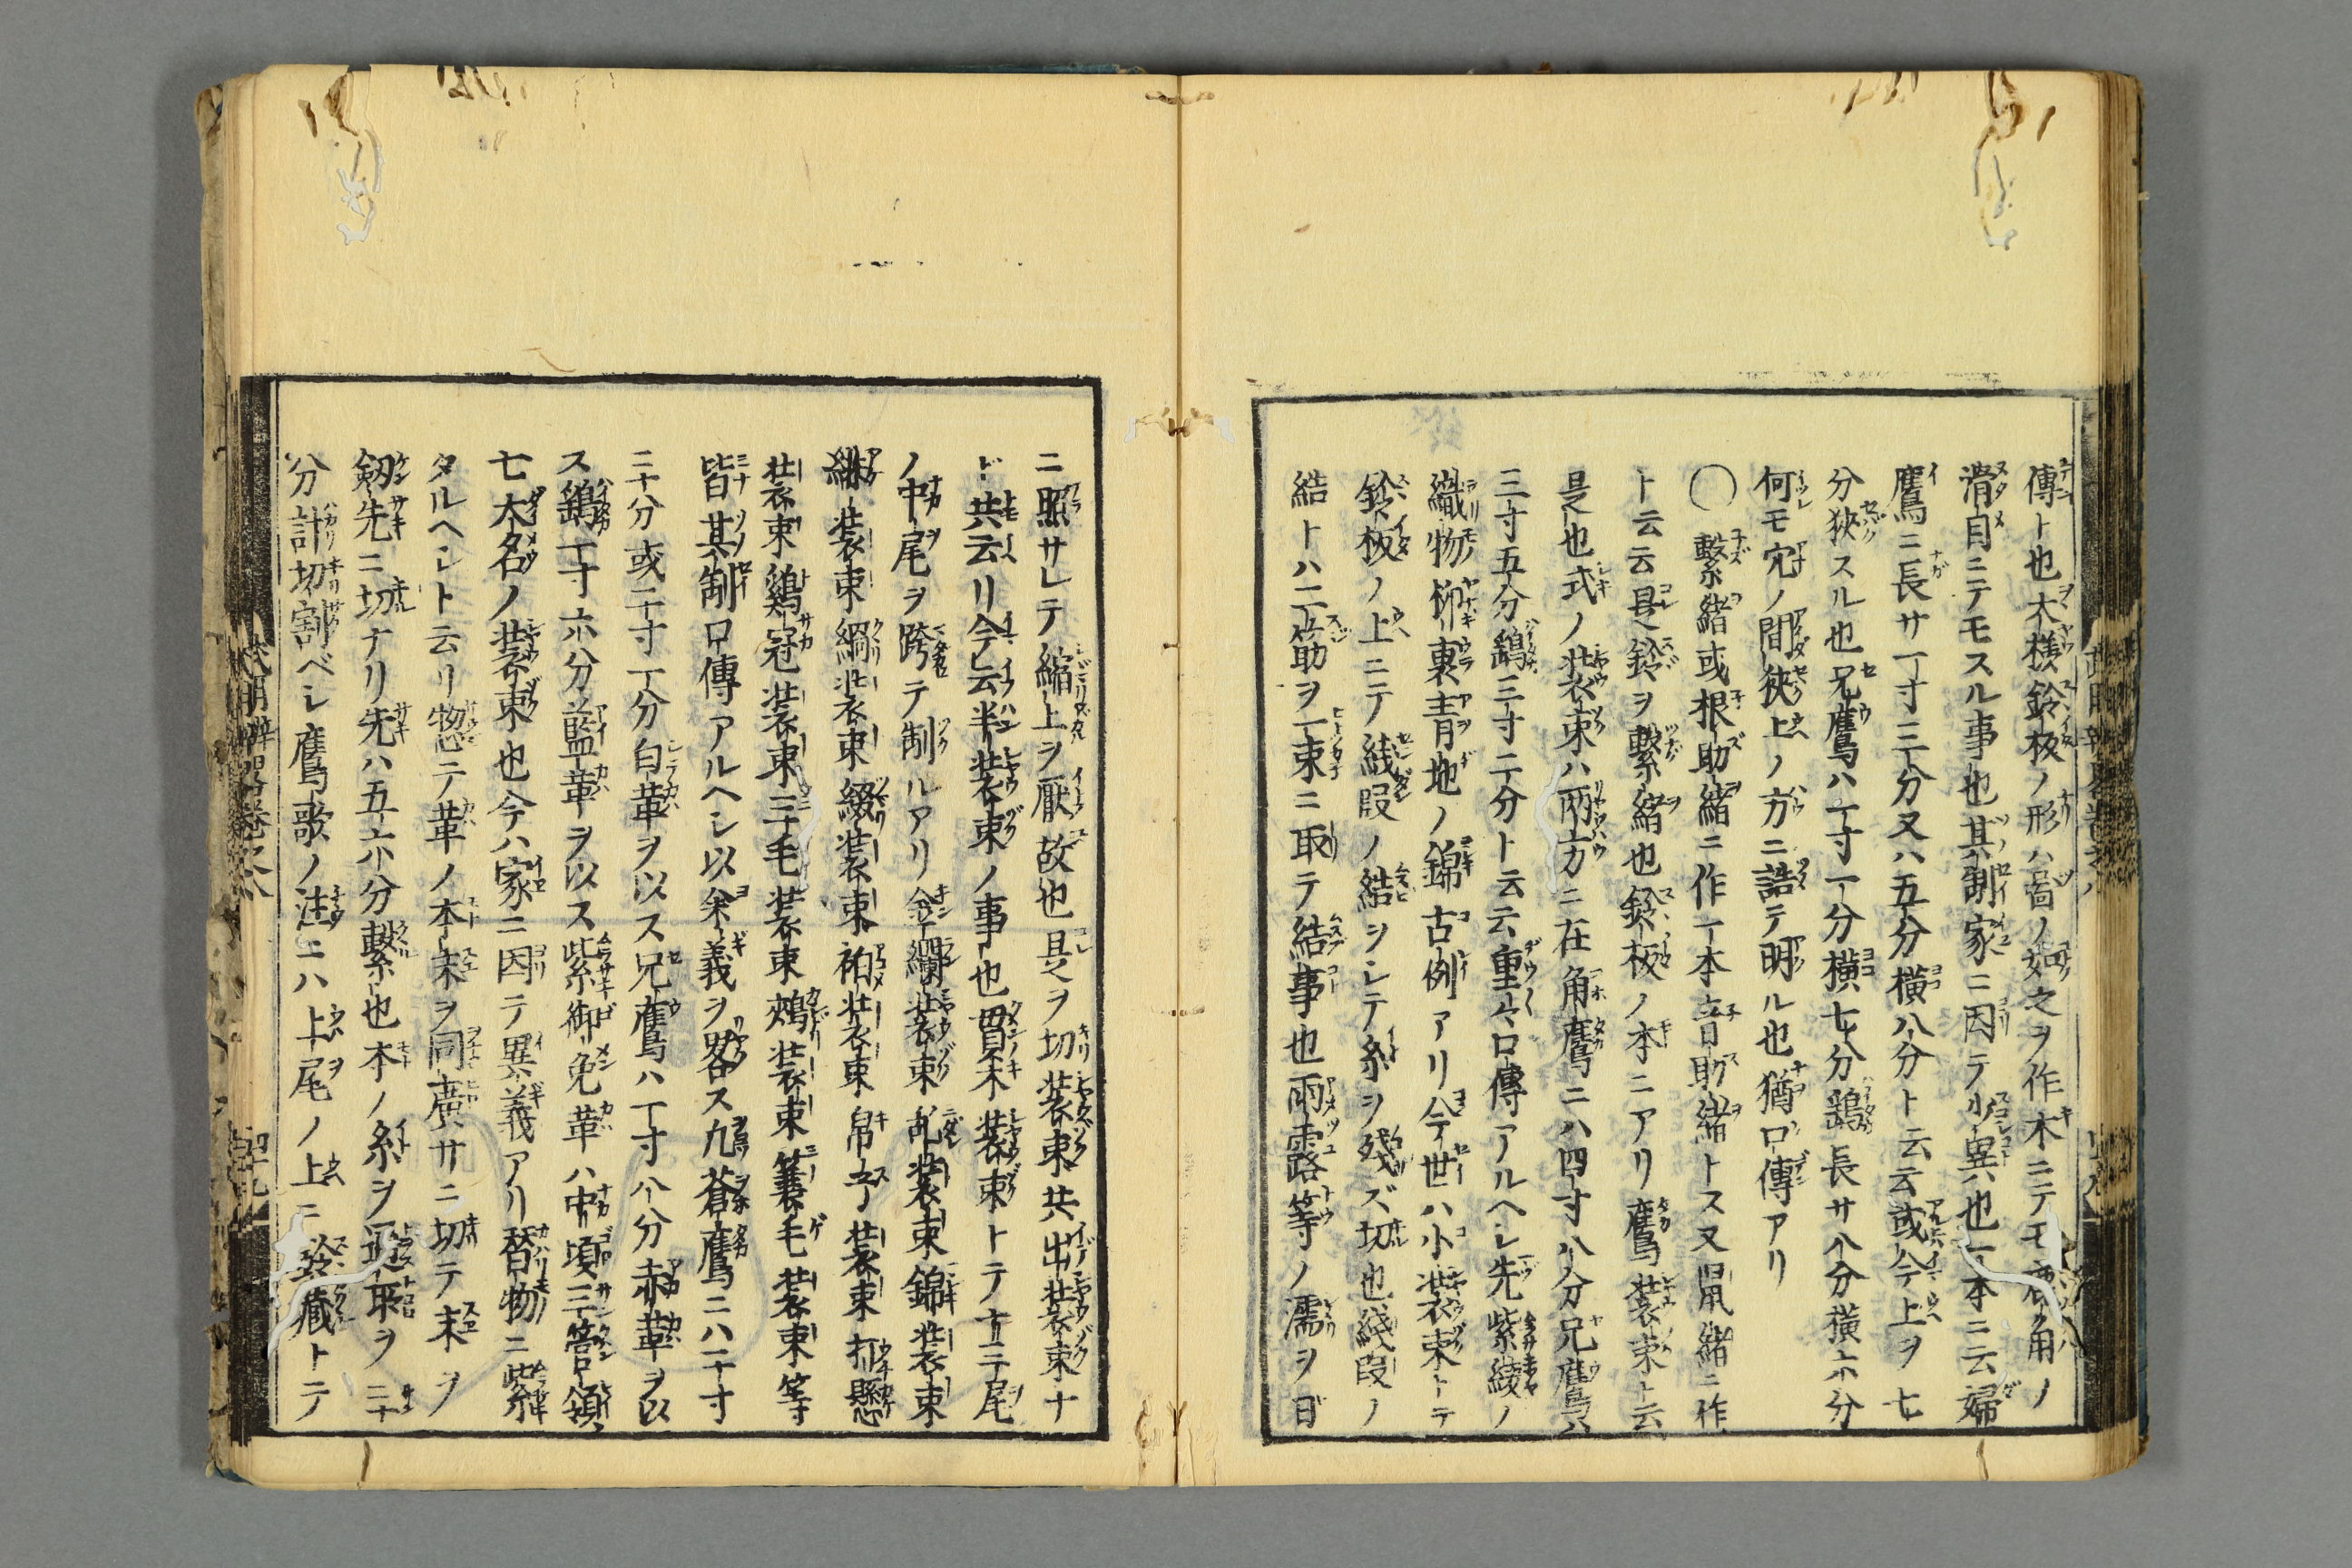 傳ト也大横鈴板ノ形ハ ノ如之ヲ作木ニテモ鹿ノ角ノ
滑自ニテモスル事也其制家ニ因テ少異也一本ニ云婦
鷹ニ長サ一寸三分又ハ五分横八分ト云云或今上ヲ七
分狹スル也兄鷹ハ一寸一分横七分鷂長サ八分横六分
何モ穴ノ間狹上ノ方ニ詰テ明ル也猶口傳アリ
〇繫緒或根助緒ニ作一本音助緒トス又鼠緒ニ作
ト云云是鈴ヲ繫緒也鈴板ノ本ニアリ鷹装束ト云
是也式ノ装束ハ兩方ニ在角鷹ニハ四寸八分兄鷹ハ
三寸五分鷂三寸二分ト云云重々口傳アルヘシ先紫綾ノ
織物柳裏青地ノ錦古例アリ今世ハ小装束トテ
鈴板ノ上ニテ綫段ノ結ヲシテ糸ヲ殘ズ切也綫段ノ
結トハ二筋ヲ一束ニ取テ結事也雨露等ノ濡ヲ日
ニ照サレテ縮上ヲ厭故也是ヲ切装束共出装束ナ
ド共云リ今云半装束ノ事也貫禾装束トテ十二尾
ノ中尾ヲ跨テ制ルアリ金襴装束乱装束錦装束
緋装束綱装束綴装束袙装束帛子装束打懸
装束鷄冠装束三毛装束鵊装束簑毛装束等
皆其制口傳アルヘシ以余義ヲ畧ス九蒼鷹ニハ二寸
二十分或二寸一分白革ヲ以ス兄鷹ハ一寸八分赤革ヲ以
ス鷂一寸六分藍革ヲ以ス紫御免革ハ中頃三管領
七大名ノ装束也今ハ家ニ因テ異義アリ替物ニ紫
タルヘシト云リ惣テ革ノ本末ヲ同廣サニ切テ末ヲ
剱先ニ切ナリ先ハ五六分繫也本ノ糸ヲ 取ヲ二十
分計切割ベシ鷹歌ノ注ニハ上尾ノ上ニ鈴藏トテ